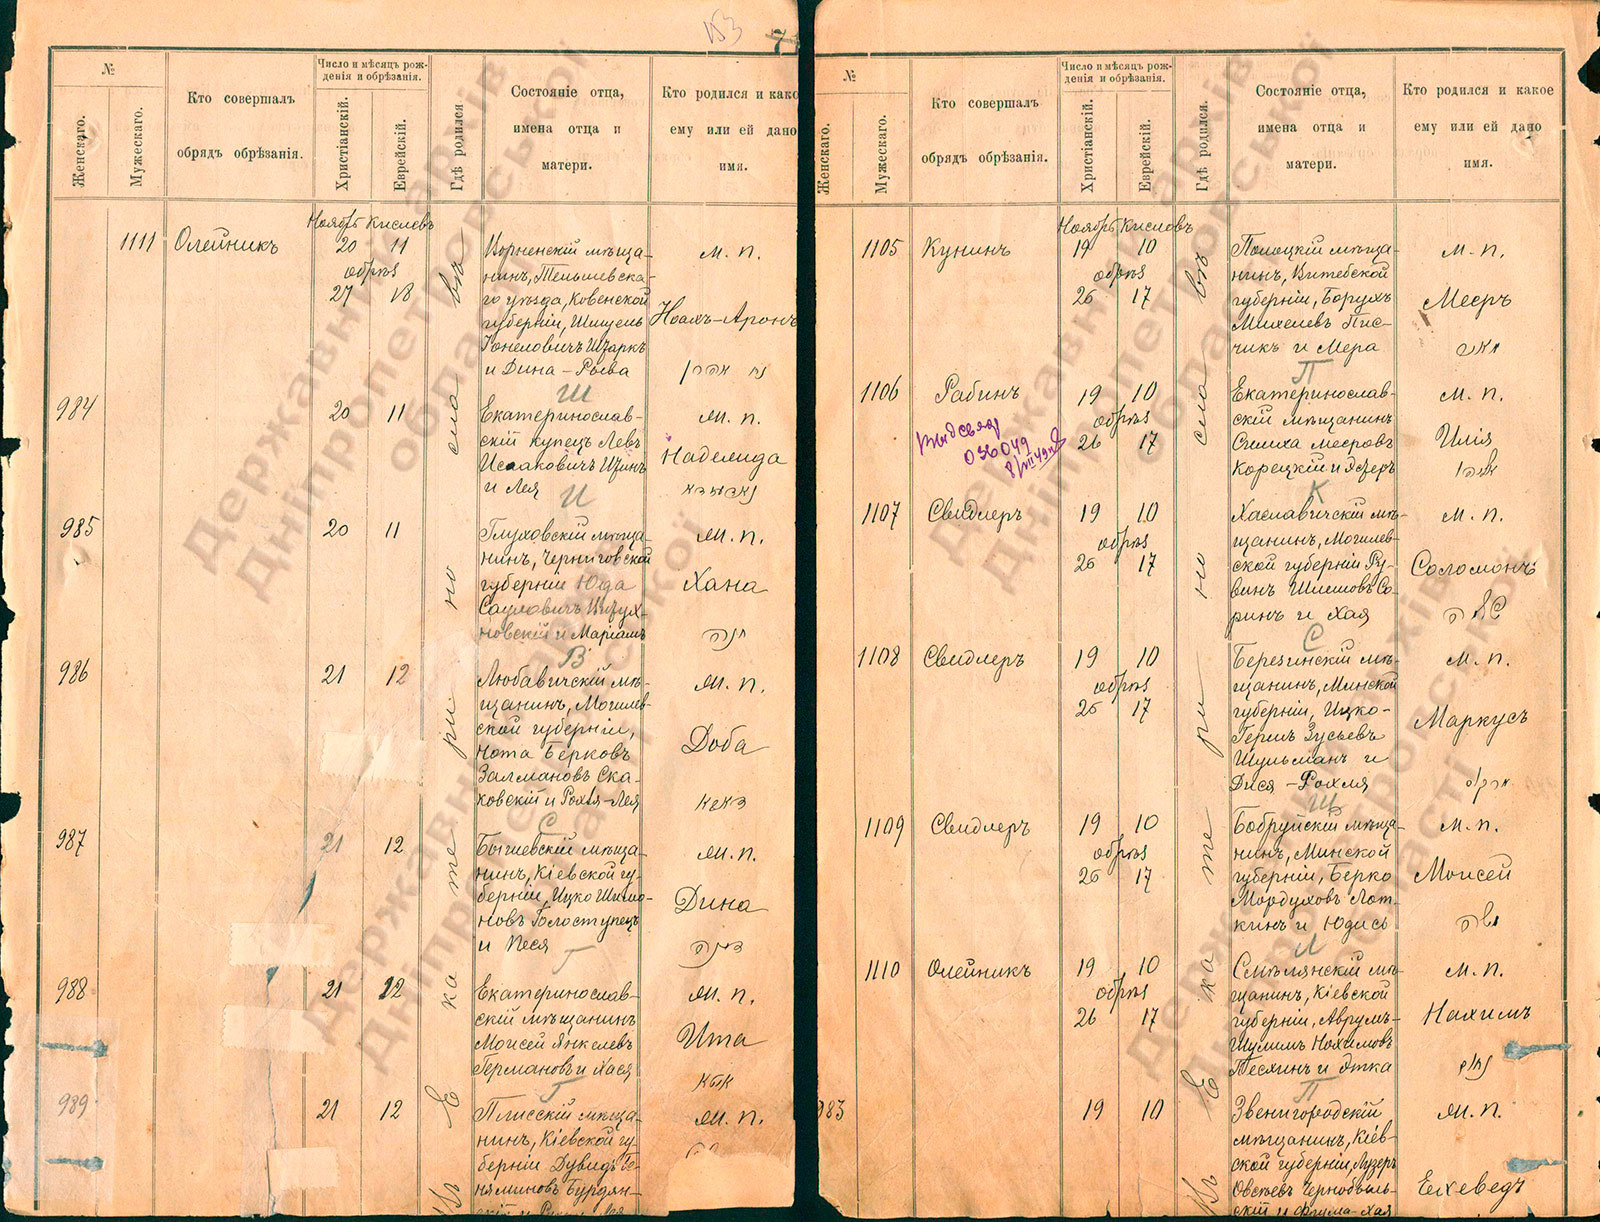 153
№
Женскаго.
Мужескаго.
Кто совершалъ
обрядъ обрѣзанія.
Число и мѣсяцъ рож-
денія и обрѣзанія.
Христіанскій.
Еврейскій.
Гдѣ родился
Состояніе отца,
имена отца и
матери.
Кто родился и како
ему или ей дано
имя.
Ноябрь Кислевъ
1111 Олейникъ 20 11
обрѣз
27 18
нинъ, Тельшевска-
го уѣзда, Ковенской
губерніи,
и Дина-
м. п.
Ноахъ-Аронъ
נח אהרן
Ш
984 20 11
Екатеринослав-
скій купецъ Левъ
Исааковичъ
и Лея
м. п.
Надежда
И
985 20 11
Глуховскій мѣща-
нинъ, Черниговской
губерніи Юда
Сауловичъ
новскій и Маріамъ
м. п.
Хана
חנה
В
986 21 12
Любавичскій мѣ-
щанинъ, Могилев-
ской губерніи,
Нота Берковъ
Залмановъ Ска-
ковскій и Рохля-Лея
м. п.
Доба
С
987 21 12
мѣща-
нинъ, Кіевской гу-
берніи, Ицко Шимо-
новъ Голоступецъ
и Песя
м. п.
Дина
דינה
Г
988 21 12
Екатеринослав-
скій мѣщанинъ
Моисей Янкелевъ
Германовъ и Хася
м. п.
Ита
Г
989 21 12
Плисскій мѣща-
нинъ, Кіевской гу-
берніи Дувидъ Бе-
няминовъ Бурдян-
м. п.
Въ Екатеринославѣ
№
Женскаго.
Мужескаго.
Кто совершалъ
обрядъ обрѣзанія.
Число и мѣсяцъ рож-
денія и обрѣзанія.
Христіанскій.
Еврейскій.
Гдѣ родился.
Состояніе отца,
имена отца и
матери.
Кто родился и какое
ему или ей дано
имя.
Ноябрь Кислевъ
1105 Кунинъ 19 10
обрѣз
26 17
Полоцкій мѣща-
нинъ, Витебской
губерніи, Борухъ
Михелевъ Пис-
чикъ и Мера
м. п.
Мееръ
מאיר
П
1106 Рабинъ 19 10
обрѣз
26 17
036049
Екатеринослав-
скій мѣщанинъ
Симха Мееровъ
Корецкій и Эстеръ
м. п.
Илія
אליהו
К
1107 Свидлеръ 19 10
обрѣз
26 17
Хославичскій мѣ-
щанинъ, Могилев-
ской губерніи Ру-
винъ Шлемовъ Со-
ринъ и Хая
м. п.
Соломонъ
שלמה
С
1108 Свидлеръ 19 10
обрѣз
26 17
Березинскій мѣ-
щанинъ, Минской
губерніи, Ицко-
Гершъ Зусьевъ
Шульманъ и
Дися-Рохля
м. п.
Маркусъ
Ш
1109 Свидлеръ 19 10
обрѣз
26 17
Бобруйскій мѣща-
нинъ, Минской
губерніи, Берко
Мордуховъ Лот-
кинъ и Юдись
м. п.
Моисей
משה
Л
1110 Олейникъ 19 10
обрѣз
26 17
Смѣлянскій мѣ-
щанинъ, Кіевской
губерніи, Аврумъ-
Шулимъ Нохимовъ
Песлинъ и Этка
м. п.
Нахимъ
П
983 19 10
Звенигородскій
мѣщанинъ, Кіев-
ской губерніи, Лузеръ
Овсѣевъ Чернобыль-
скій и Фрума-Хая
м. п.
Еихеведъ
Въ Екатеринославѣ
Державний архів
Дніпропетровської
області